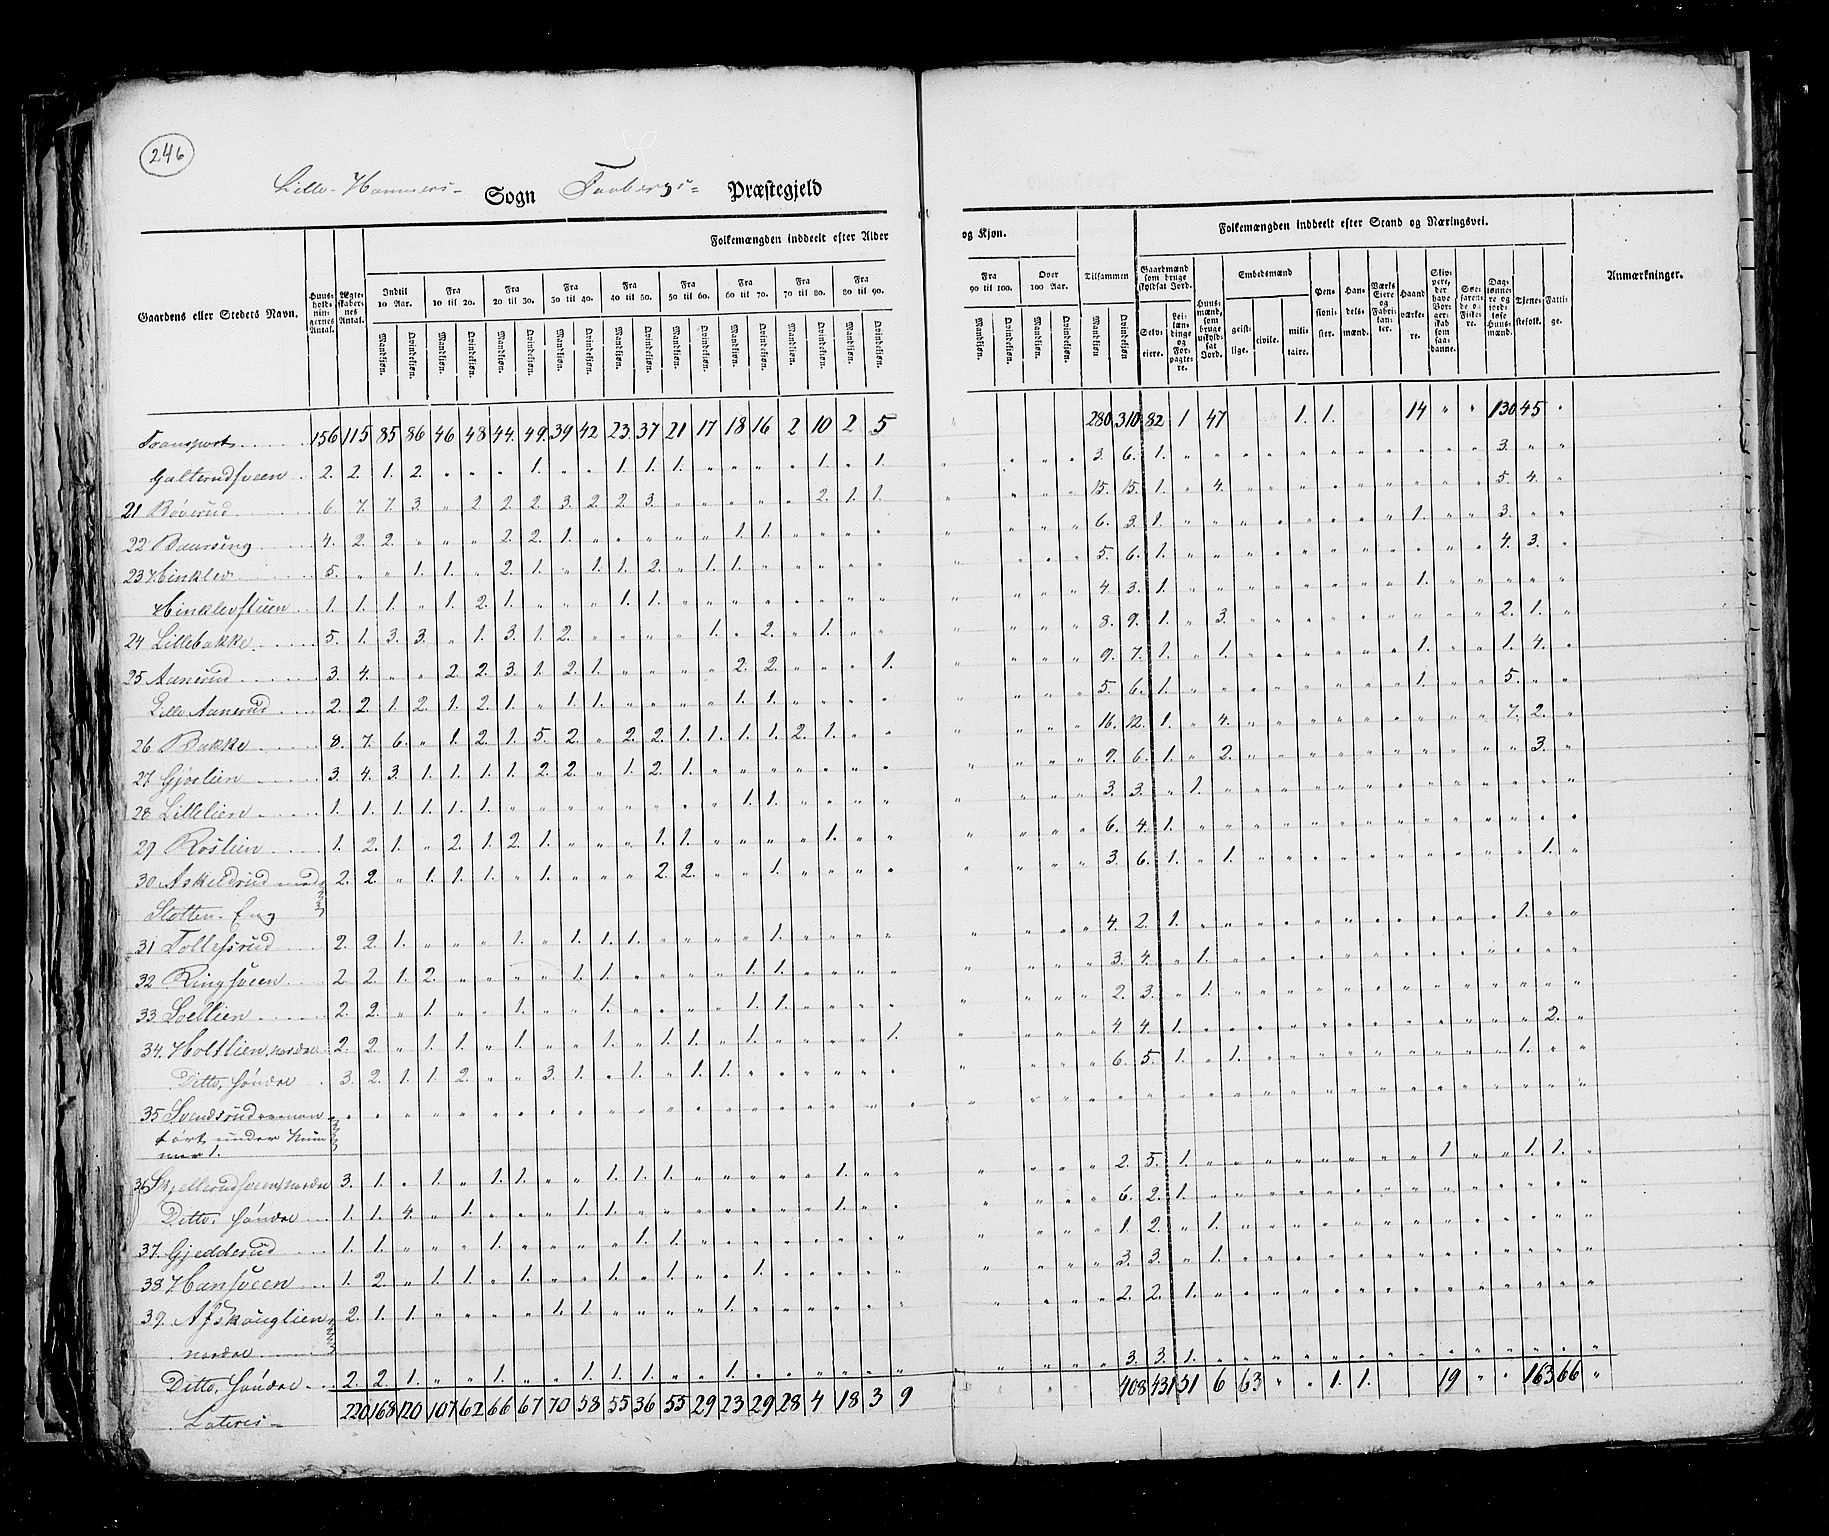 246
Lille-Hammers- Sogn Faabergs- Præstegjeld
Folkemængden inddeelt efter Alder og Kjøn.
Folkemængden inddeelt efter Stand og Næringsvei.
Gaardens eller Stedets Navn.
Huusholdningernes Antal.
Ægteskabernes Antal.
Indtil 10 Aar.
Fra 10 til 20.
Fra 20 til 30.
Fra 30 til 40.
Fra 40 til 50.
Fra 50 til 60.
Fra 60 til 70.
Fra 70 til 80.
Fra 80 til 90.
Fra 90 til 100.
Over 100 Aar.
Tilsammen
Mandkjøn. Qvindekjøn.
Gaardmænd som bruge skyldsat Jord.
Selveiere.
Leilændinge og Forpagtere.
Huusmænd, som bruge uskyldsat Jord.
Embedsmænd
geistlige. civile. militaire.
Pensionister.
Handelsmænd.
Værks Eiere og Fabrikanter.
Haandværkere.
Skippere, der have Borgerskab som saadanne.
Søefarende og Fiskere.
Daglønnere og jordløse Huusmænd.
Tjenestefolk.
Fattige.
Anmærkninger.
Transport 156 115 85 86 46 48 44 49 39 42 23 37 21 17 18 16 2 10 2 5 280 310 82 1 47 1. 1. 14 " " 130 45 "
Galterudsveen 2. 2. 1. 2. 1. 1. 1. 1. 1. 1. 3. 6. 1. 3.
21 Røverud 6 7. 7. 3. 2 2. 2. 2 3. 2. 2 3. 2. 1. 1. 15. 15. 1. 4. 5. 4.
22 Baarseng 4. 2. 2. 2. 2. 1. 1. 1. 6. 3. 1. 1. 3.
23 Hinklev 5. 1. 1. 2. 1. 1. 1. 2. 1. 1. 5. 6. 1. 4. 3.
Hinklevstuen 1. 1. 1. 1. 2. 1. 1. 1. 4. 3. 1. 1.
24 Lillebakke 5. 1. 3. 3. 1. 3. 1. 2. 1. 2. 1. 8. 9. 1. 3. 2. 1.
25 Aanerud 3. 4. 2 2. 3. 1. 2. 1. 2. 2. 1. 9. 7. 1. 1. 1. 1. 4.
Lille Aanerud 2. 2. 1. 2. 1. 2. 1. 1. 1. 1. 1. 5. 6. 1. 1. 5.
26 Bakke 8. 7. 6. 1. 2. 1. 5. 2. 2. 2. 1. 1. 1. 1. 2. 1. 16. 12. 1. 4. 7. 2.
27 Gjørlien 3. 4. 3. 1. 1. 1. 1. 2. 2. 1. 2. 1. 9. 6. 1. 2. 3.
28 Lillelien 1. 1. 1. 1. 1. 1. 1. 1. 3. 3. 1.
29 Roslien 1. 2. 1. 2. 1. 2. 1. 1. 1. 1. 6. 4. 1.
30 Askeldrud med 2. 2. 1. 1. 1. 1. 2. 2. 1. 3. 6. 1. 1. 1.
Slotten. Eng
31 Tollefsrud 2. 2. 1. 1. 1. 1. 1. 1. 4. 2. 1. 1.
32 Ringsveen 2. 2. 1. 2. 1. 1. 1. 1. 3. 4. 1.
33 2. 2. 1. 1. 1. 1. 1. 2. 3. 1.
34. Holtlien, nordre 2. 2. 1. 1. 1. 1. 1. 1. 1. 1. 4 4. 1. 2.
Ditto, søndre 3. 2. 1. 1. 2. 3. 1. 1. 1. 1. 6. 5. 1. 1. 1.
35 Svendsrud
ført under Num
mer 1.
36 Skjellerudsveen, nordre 3. 1. 1. 1. 1. 1. 1. 1. 1. 2. 5. 1. 1. 1. 1.
Ditto, søndre 1. 1. 4. 1. 1. 1. 1. 6. 2. 1.
37. Gjedderud 1. 1. 1. 1. 1. 1. 2. 1.
38 Hansveen 1. 2. 1. 1. 1. 1. 1. 1. 3. 3. 1.
39. Afskouglien 2. 1. 1. 1. 1. 1. 2. 2. 1.
nordre
Ditto, søndre 2. 2. 1. 1. 1. 1. 1. 1. 3. 3. 1.
Lateris- 220 168 120 107 62 66 67 70 58 55 36 55 29 23 29 28 4 18 3 9 408 431 51 6 63 1. 1. 19 163 66 "